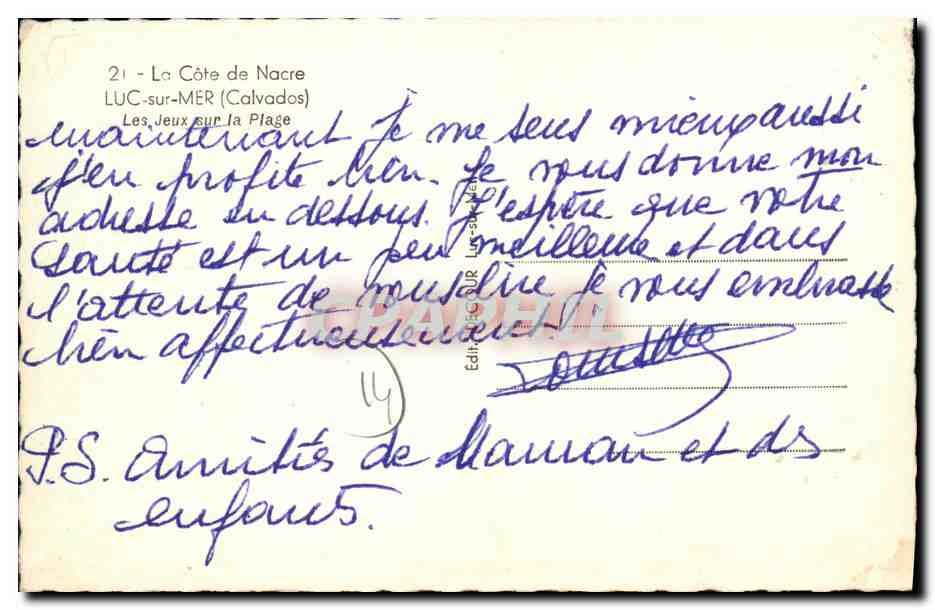 21 - La Côte de Nacre
LUC-sur-MER (Calvados)
Les Jeux sur la Plage
maintenant je me sens mieux aussi
j'en profite bien. Je vous donne mon
adresse en dessous. J'espère que votre
santé est un peu meilleure et dans
l'attente de vous lire je vous embrasse
bien affectueusement.
P.S. Amitiés de Maman et des
enfants.
14
Edit. DECOUR Luc-sur-Mer
CPAPHIL